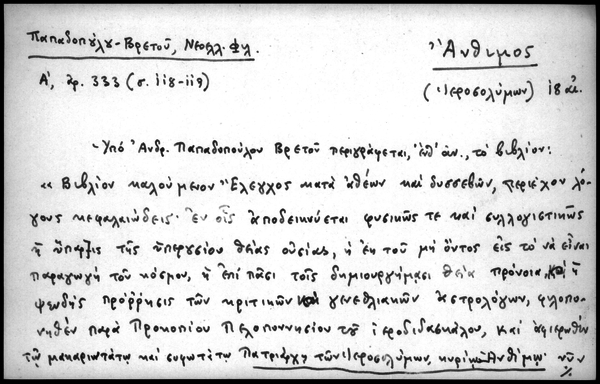 Παπαδοπούλου-Βρετοῦ, Νεοελλ. Φιλ.
Ἄνθιμος
Α', ἀρ. 333 (σ. 118-119)
(Ἱεροσολύμων) 18 αἰ.
Ὑπό Ἀνδρ. Παπαδοπούλου Βρετοῦ περιγράφεται, ἔνθ' ἀν., τό βιβλίον:
«Βιβλίον καλούμενον Ἔλεγχος κατά ἀθέων καί δυσσεβῶν, περιέχον λό-
γους κεφαλαιώδεις· ἐν οἷς ἀποδεικνύεται φυσικῶς τε καί συλλογιστικῶς
ἡ ὕπαρξις τῆς ὑπερουσίου θείας οὐσίας, ἡ ἐκ τοῦ μή ὄντος εἰς τό νά εἶναι
παραγωγή τοῦ κόσμου, ἡ ἐπί πᾶσι τοῖς δημιουργήμασι θεία πρόνοια, καί ἡ
ψευδής πρόρρησις τῶν κριτικῶν καί γενεθλιακῶν ἀστρολόγων, φιλοπο-
νηθέν παρά Προκοπίου Πελοποννησίου τοῦ ἱεροδιδασκάλου, καί ἀφιερωθέν
τῷ μακαριωτάτῳ καί σοφωτάτῳ Πατριάρχῃ τῶν Ἱεροσολύμων, κυρίῳ Ἀνθίμῳ· νῦν